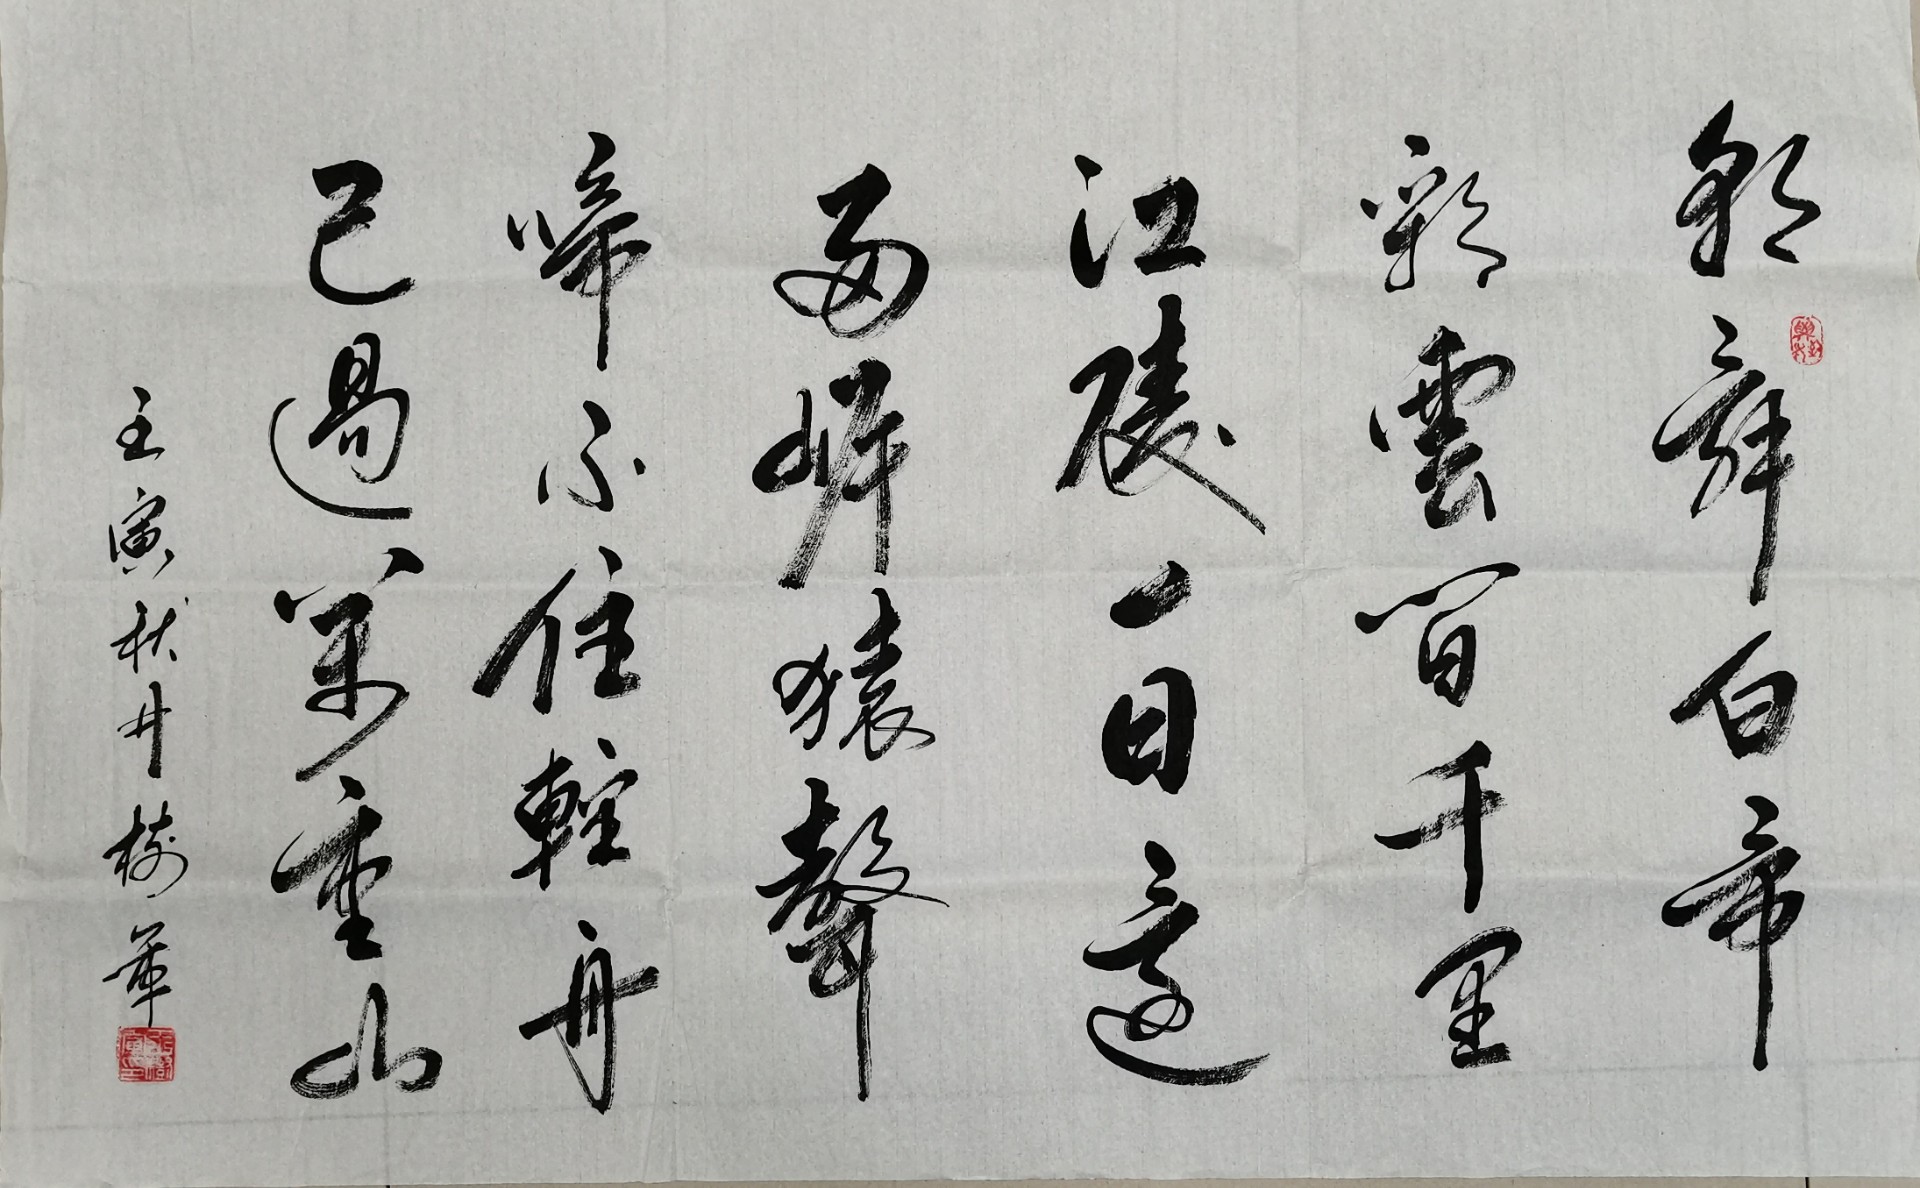 朝辞白帝
彩雲間千里
江陵一日還
两岸猿聲
啼不住輕舟
已過萬重山
壬寅秋井樹華